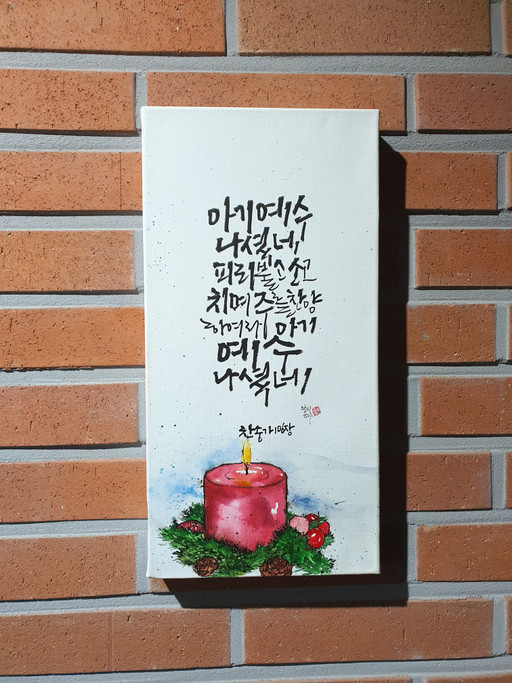 아기예수
나셨네,
피리불고 소고
치며 주를찬양
하여라, 아기
예수
나셨네,
찬송가113장